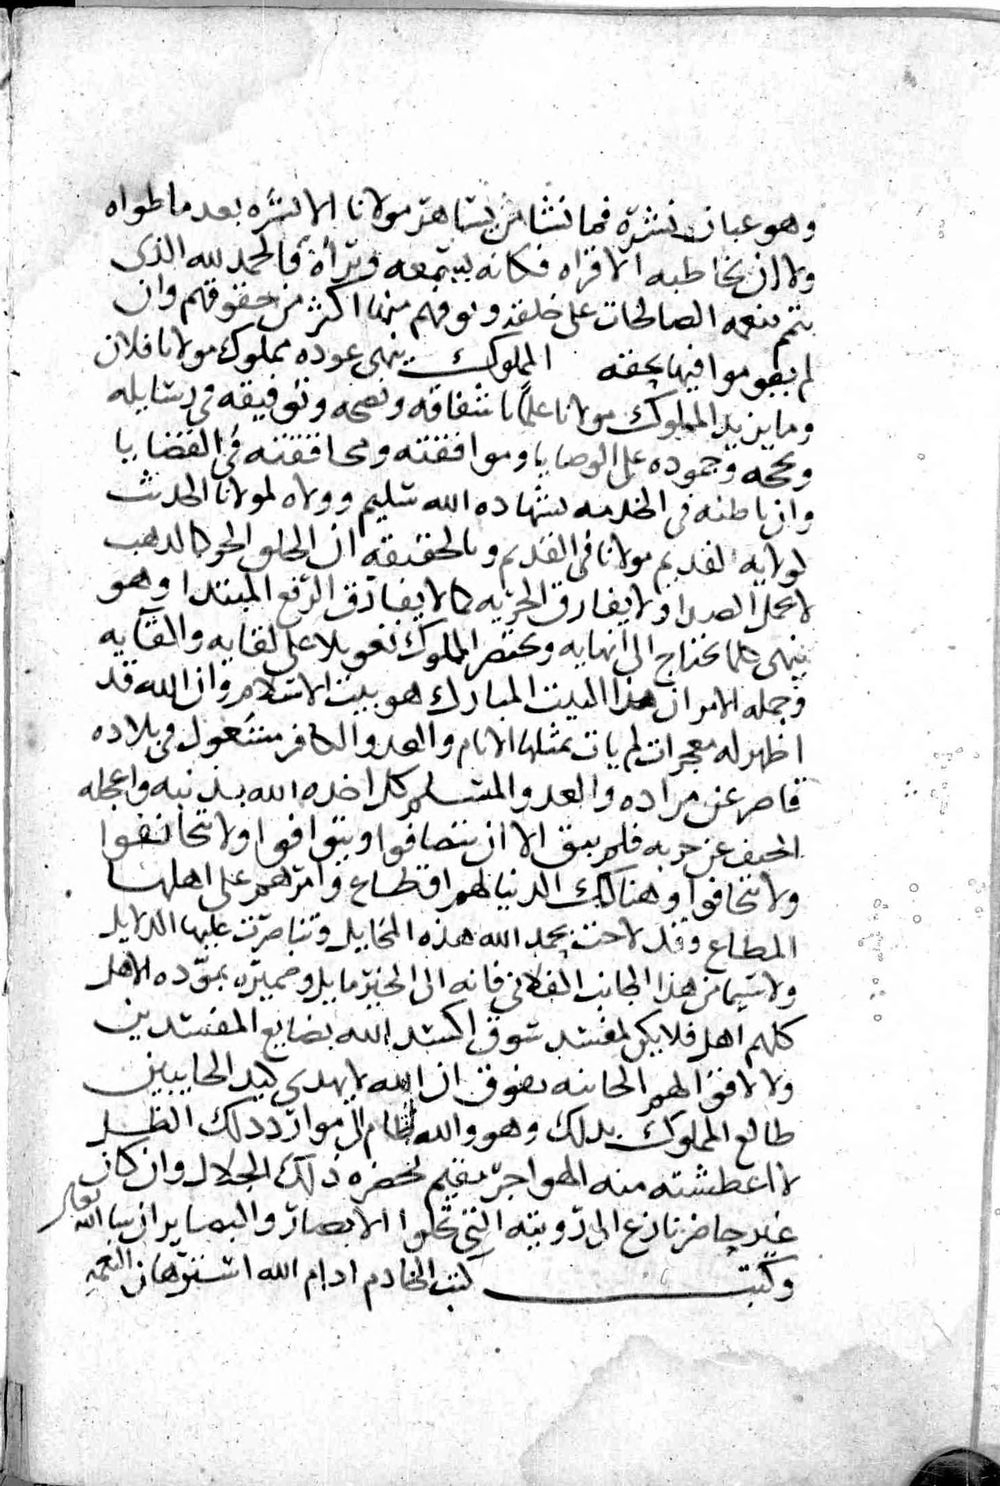 وهو عبارة نشره فما نشا من بشاهر مولانا الا نشره بعد ما طواه
ولا ان يخاطبه الا قراه فكانه يسمعه ويراه فالحمد لله الذى
بنعمه الصالحات على خلقه ونوفهم منها اكثر من حقوقهم وان
لم يقوموا فيها بحقه المملوك ينهى عوده مملوك مولانا فلان
وما يزيد المملوك مولانا علما باشفاقه ونصحه وتوفيقه فى رسايله
ونجحه وجموده على الوصايا وموافقته ومحاققته فى القضايا
وان باطنه فى الخدمه بشهاده الله سليم وولاه لمولانا الحديث
لولايه لقديم مولانا فى القديم وبالحقيقه ان الخلق الحر كالذهب
لا يحمل الصدا ولا يفارق الحريه كما لا يفارق الرفع المبتدا وهو
ينهى كلما يحتاج الى انهايه ويختصر المملوك تعويلا على لقايه والقايه
وجمله الامر ان هذا البيت المبارك هو بيت الاسلام وان الله قد
اظهر له معجزات لم يات بمثلها الانام والعدو الكافر مشغول فى بلاده
قاصر عن مراده والعدو المسلم كل اخذه الله بذنبه واعجله
الحيف عن حربه فلم يبق الا ان يتصافوا ويتوافوا ولا يتخانفوا
ولا يتخافوا وهنالك الدنيا لهم اقطاع وامرهم على اهلها
المطاع وقد لاحت بحمد الله هذه المخايل وتناصرت عليها الدلايل
ولا سيما من هذا الجانب الفلانى فانه الى الخير مايل وضميره بموده الاهل
كلهم اهل فلا يكن لمفسد سوق اكسد الله بضايع المفسدين
ولا لافق الهم الخاينه نفوق ان الله لا يهدى كيد الخاينين
طالع المملوك بذلك وهو والله ظام الى موارد ذلك الظل
لا اعطشته منه الهواجر مقيم لحضره ذلك الجلال وان كان
غير حاضر نازع الى رؤيته التى تجلوا الابصار والبصاير ان شا الله تعالى
وكتب كتب الخادم ادام الله النعمه